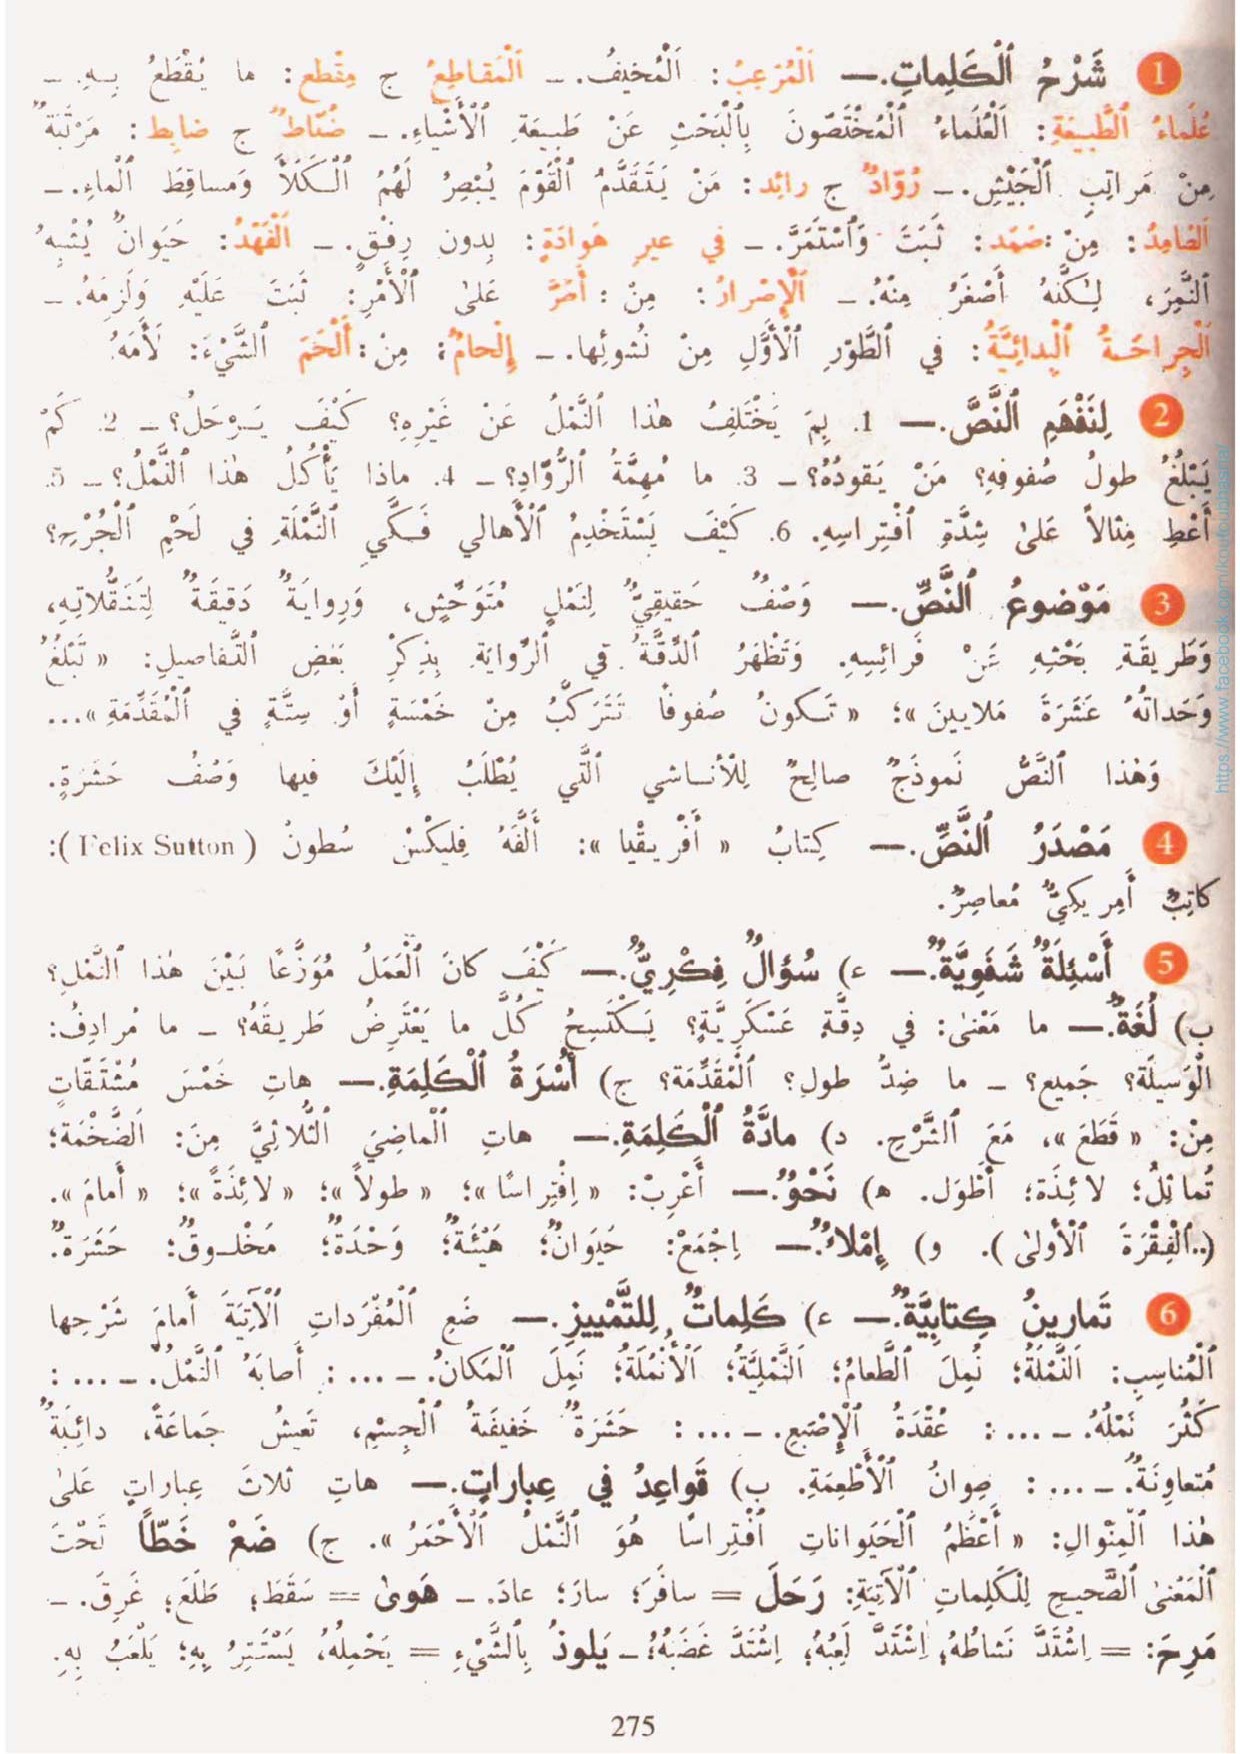 1 شَرْحُ ٱلْكَلِماتِ.— اَلْمُرْعِبُ: اَلْمُخيفُ. – اَلْمَقاطِعُ ج مِقْطَع: ما يُقْطَعُ بِـهِ. –
عُلَماءُ ٱلطَّبيعَةِ: اَلْعُلَماءُ ٱلْمُخْتَصّونَ بِٱلْبَحْثِ عَنْ طَبيعَةِ ٱلْأَشْياءِ. – ضُبّاطٌ ج ضابِط: مَرْتَبَةٌ
مِنْ مَراتِبِ ٱلْجَيْشِ. – رُوّادٌ ج رائِد: مَنْ يَتَقَدَّمُ ٱلْقَوْمَ يُبْصِرُ لَهُمُ ٱلْكَلَأَ وَمَساقِطَ ٱلْماءِ. –
اَلصّامِدُ: مِنْ: صَمَد: ثَبَتَ وَٱسْتَمَرَّ. – في غيرِ هَوادَةٍ: بِدونِ رِفْقٍ. – اَلْفَهْدُ: حَيَوانٌ يُشْبِهُ
ٱلنَّمِرَ، لـٰكِنَّهُ أَصْغَرُ مِنْهُ. – اَلْإِصْرارُ: مِنْ: أَصَرَّ عَلىٰ ٱلْأَمْرِ: ثَبَتَ عَلَيْهِ وَلَزِمَهُ. –
اَلْجِراحَةُ ٱلْبِدائِيَّةُ: في ٱلطَّوْرِ ٱلْأَوَّلِ مِنْ نُشوئِها. – إِلْحامٌ: مِنْ: أَلْحَمَ ٱلشَّيْءَ: لَأَمَهُ
2 لِنَفْهَمِ ٱلنَّصَّ.— 1. بِمَ يَخْتَلِفُ هٰذا ٱلنَّمْلُ عَنْ غَيْرِهِ؟ كَيْفَ يَـرْحَلُ؟ – 2. كَمْ
يَبْلُغُ طولُ صُفوفِهِ؟ مَنْ يَقودُهُ؟ – 3. ما مُهِمَّةُ ٱلرُّوّادِ؟ – 4. ماذا يَأْكُلُ هٰذا ٱلنَّمْلُ؟ – 5.
أَعْطِ مِثالاً عَلىٰ شِدَّةِ ٱفْتِراسِهِ. 6. كَيْفَ يَسْتَخْدِمُ ٱلْأَهالي فَـكَّيِ ٱلنَّمْلَةِ في لَحْمِ ٱلْجُرْحِ؟
3 مَوْضوعُ ٱلنَّصِّ.— وَصْفٌ حَقيقِيٌّ لِنَمْلٍ مُتَوَحِّشٍ، وَرِوايَـةٌ دَقيقَةٌ لِتَنَقُّلاتِهِ،
وَطَريقَةِ بَحْثِهِ عَنْ فَرائِسِهِ. وَتَظْهَرُ ٱلدِّقَّةُ في ٱلرِّوايَةِ بِذِكْرِ بَعْضِ ٱلتَّفاصيلِ: « تَبْلُغُ
وَحَداتُهُ عَشَرَةَ مَلايينَ »؛ « تَـكونُ صُفوفاً تَتَرَكَّبُ مِنْ خَمْسَةٍ أَوْ سِتَّةٍ في ٱلْمُقَدِّمَةِ »...
وَهٰذا ٱلنَّصُّ نَموذَجٌ صالِحٌ لِلْأنـاشي ٱلَّتي يُطْلَبُ إِلَيْكَ فيها وَصْفُ حَشَرَةٍ.
4 مَصْدَرُ ٱلنَّصِّ.— كِتابُ « أَفْريقْيا »: أَلَّفَهُ فِليكْسْ سُطونْ ( Felix Sutton ):
كاتِبٌ أَمِريكِيٌّ مُعاصِرٌ.
5 أَسْئِلَةٌ شَفَوِيَّةٌ.— ء) سُؤالٌ فِكْرِيٌّ.— كَيْفَ كانَ ٱلْعَمَلُ مُوَزَّعًا بَيْنَ هٰذا ٱلنَّمْلِ؟
ب) لُغَةٌ.— ما مَعْنىٰ: في دِقَّةٍ عَسْكَرِيَّةٍ؟ يَـكْتَسِحُ كُلَّ ما يَعْتَرِضُ طَريقَهُ؟ – ما مُرادِفُ:
الْوَسيلَة؟ جَميع؟ – ما ضِدُّ طول؟ ٱلْمُقَدِّمَة؟ ج) أُسْرَةُ ٱلْكَلِمَةِ.— هاتِ خَمْسَ مُشْتَقّاتٍ
مِنْ: « قَطَعَ »، مَعَ ٱلشَّرْحِ. د) مادَّةُ ٱلْكَلِمَةِ.— هاتِ ٱلْماضِيَ ٱلثُّلاثِيَّ مِنَ: اَلضَّخْمَة؛
تُماثِلُ؛ لائِذَة؛ أَطْوَل. ه) نَحْوٌ.— أَعْرِبْ: « اِفْتِراسًا »؛ « طولاً »؛ « لائِذَةً »؛ « أَمامَ ».
(..ٱلْفِقْرَةَ ٱلْأولىٰ). و) إِمْلاءٌ.— اِجْمَعْ: حَيَوانٌ؛ هَيْئَةٌ؛ وَحْدَةٌ؛ مَخْلـوقٌ؛ حَشَرَةٌ.
6 تَمارينُ كِتابِيَّةٌ.— ء) كَلِماتٌ لِلتَّمْييزِ.— ضَعِ ٱلْمُفْرَداتِ ٱلْآتِيَةَ أَمامَ شَرْحِها
ٱلْمُناسِبِ: اَلنَّمْلَةُ؛ نُمِلَ ٱلطَّعامُ؛ اَلنَّمْلِيَّةُ؛ اَلْأُنْمُلَةُ؛ نَمِلَ ٱلْمَكانُ. – ... : أَصابَهُ ٱلنَّمْلُ. – ... :
كَثُرَ نَمْلُهُ. – ... : عُقْدَةُ ٱلْإِصْبَعِ. – ... : حَشَرَةٌ خَفيفَةُ ٱلْجِسْمِ، تَعيشُ جَماعَةً، دائِبَةٌ
مُتعاوِنَةٌ. – ... : صِوانُ ٱلْأَطْعِمَةِ. ب) قَواعِدُ في عِباراتٍ.— هاتِ ثلاثَ عِباراتٍ عَلىٰ
هٰذا ٱلْمِنْوالِ: « أَعْظَمُ ٱلْحَيَواناتِ ٱفْتِراسًا هُوَ ٱلنَّمْلُ ٱلْأَحْمَرُ ». ج) ضَعْ خَطًّا تَحْتَ
ٱلْمَعْنىٰ ٱلصَّحيحِ لِلْكَلِماتِ ٱلْآتِيَةِ: رَحَلَ = سافَرَ؛ سارَ؛ عادَ. – هَوىٰ = سَقَطَ؛ طَلَعَ؛ غَرِقَ. –
مَرِحَ: = اِشْتَدَّ نَشاطُهُ؛ اِشْتَدَّ لَعِبُهُ؛ اِشْتَدَّ غَضَبُهُ؛ – يَلوذُ بِٱلشَّيْءِ = يَحْمِلُهُ، يَسْتَتِرُ بِهِ؛ يَلْعَبُ بِهِ.
275